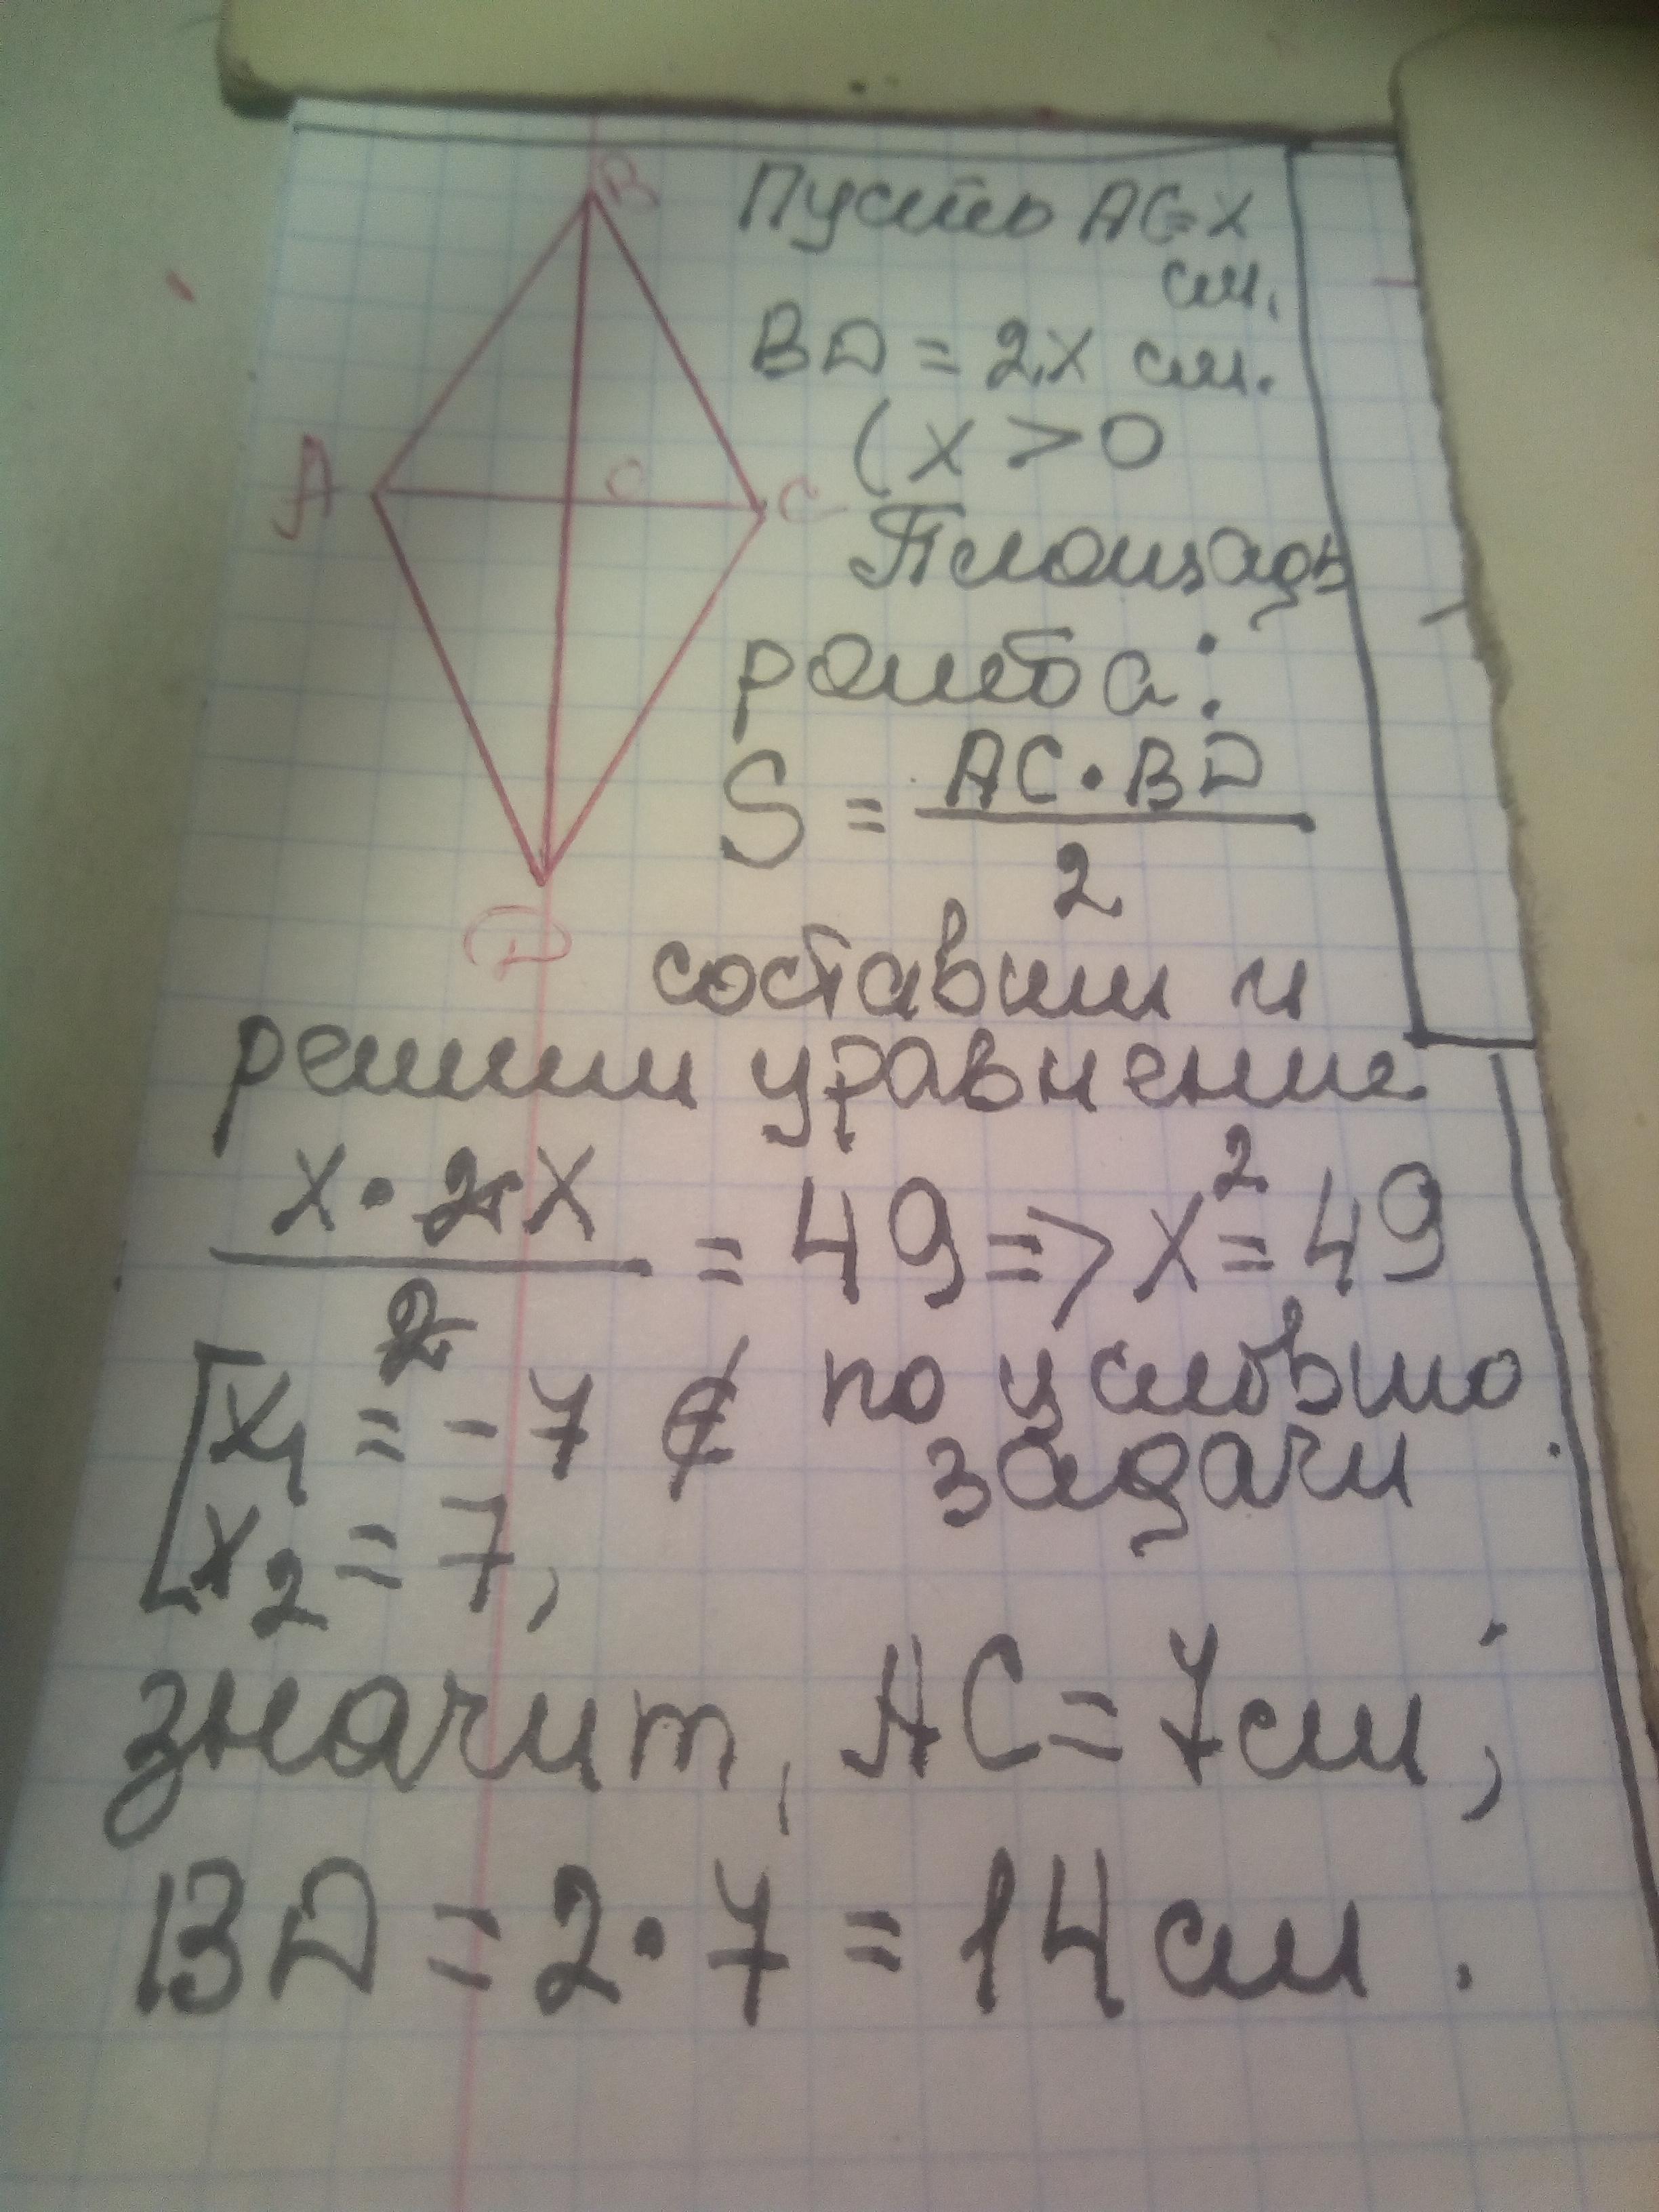 B
Пусть AC=x
см.
BD = 2x см.
(x > 0
A
C
C
Площадь
ромба:
S = AC·BD
2
D
составим и
решим уравнение
x·2x
2
= 49 => x² = 49
[x₁ = -7 ∉ по условию
задачи
x₂ = 7,
значит, AC = 7см;
BD = 2·7 = 14 см.